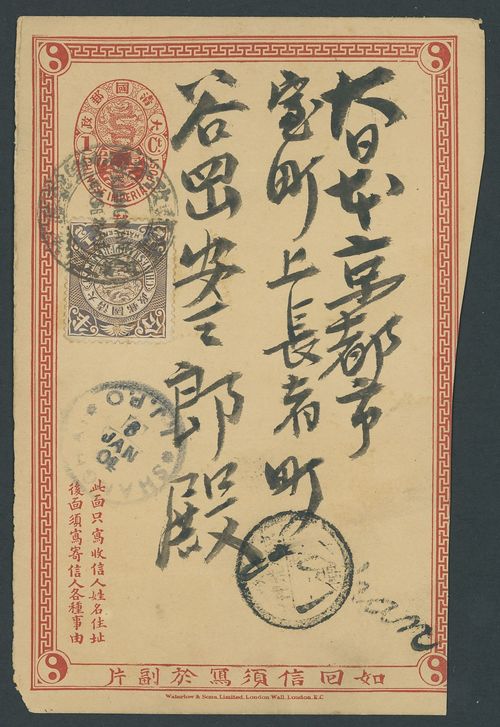 大日本京都市
室町上長者町
谷岡安三郎殿
Japan
大清國郵政
1 C
CHINESE IMPERIAL POST
JAN
此面只寫收信人姓名住址
後面須寫寄信人各種事由
如回信須寫於副片
Waterlow & Sons, Limited, London Wall, London, E.C.